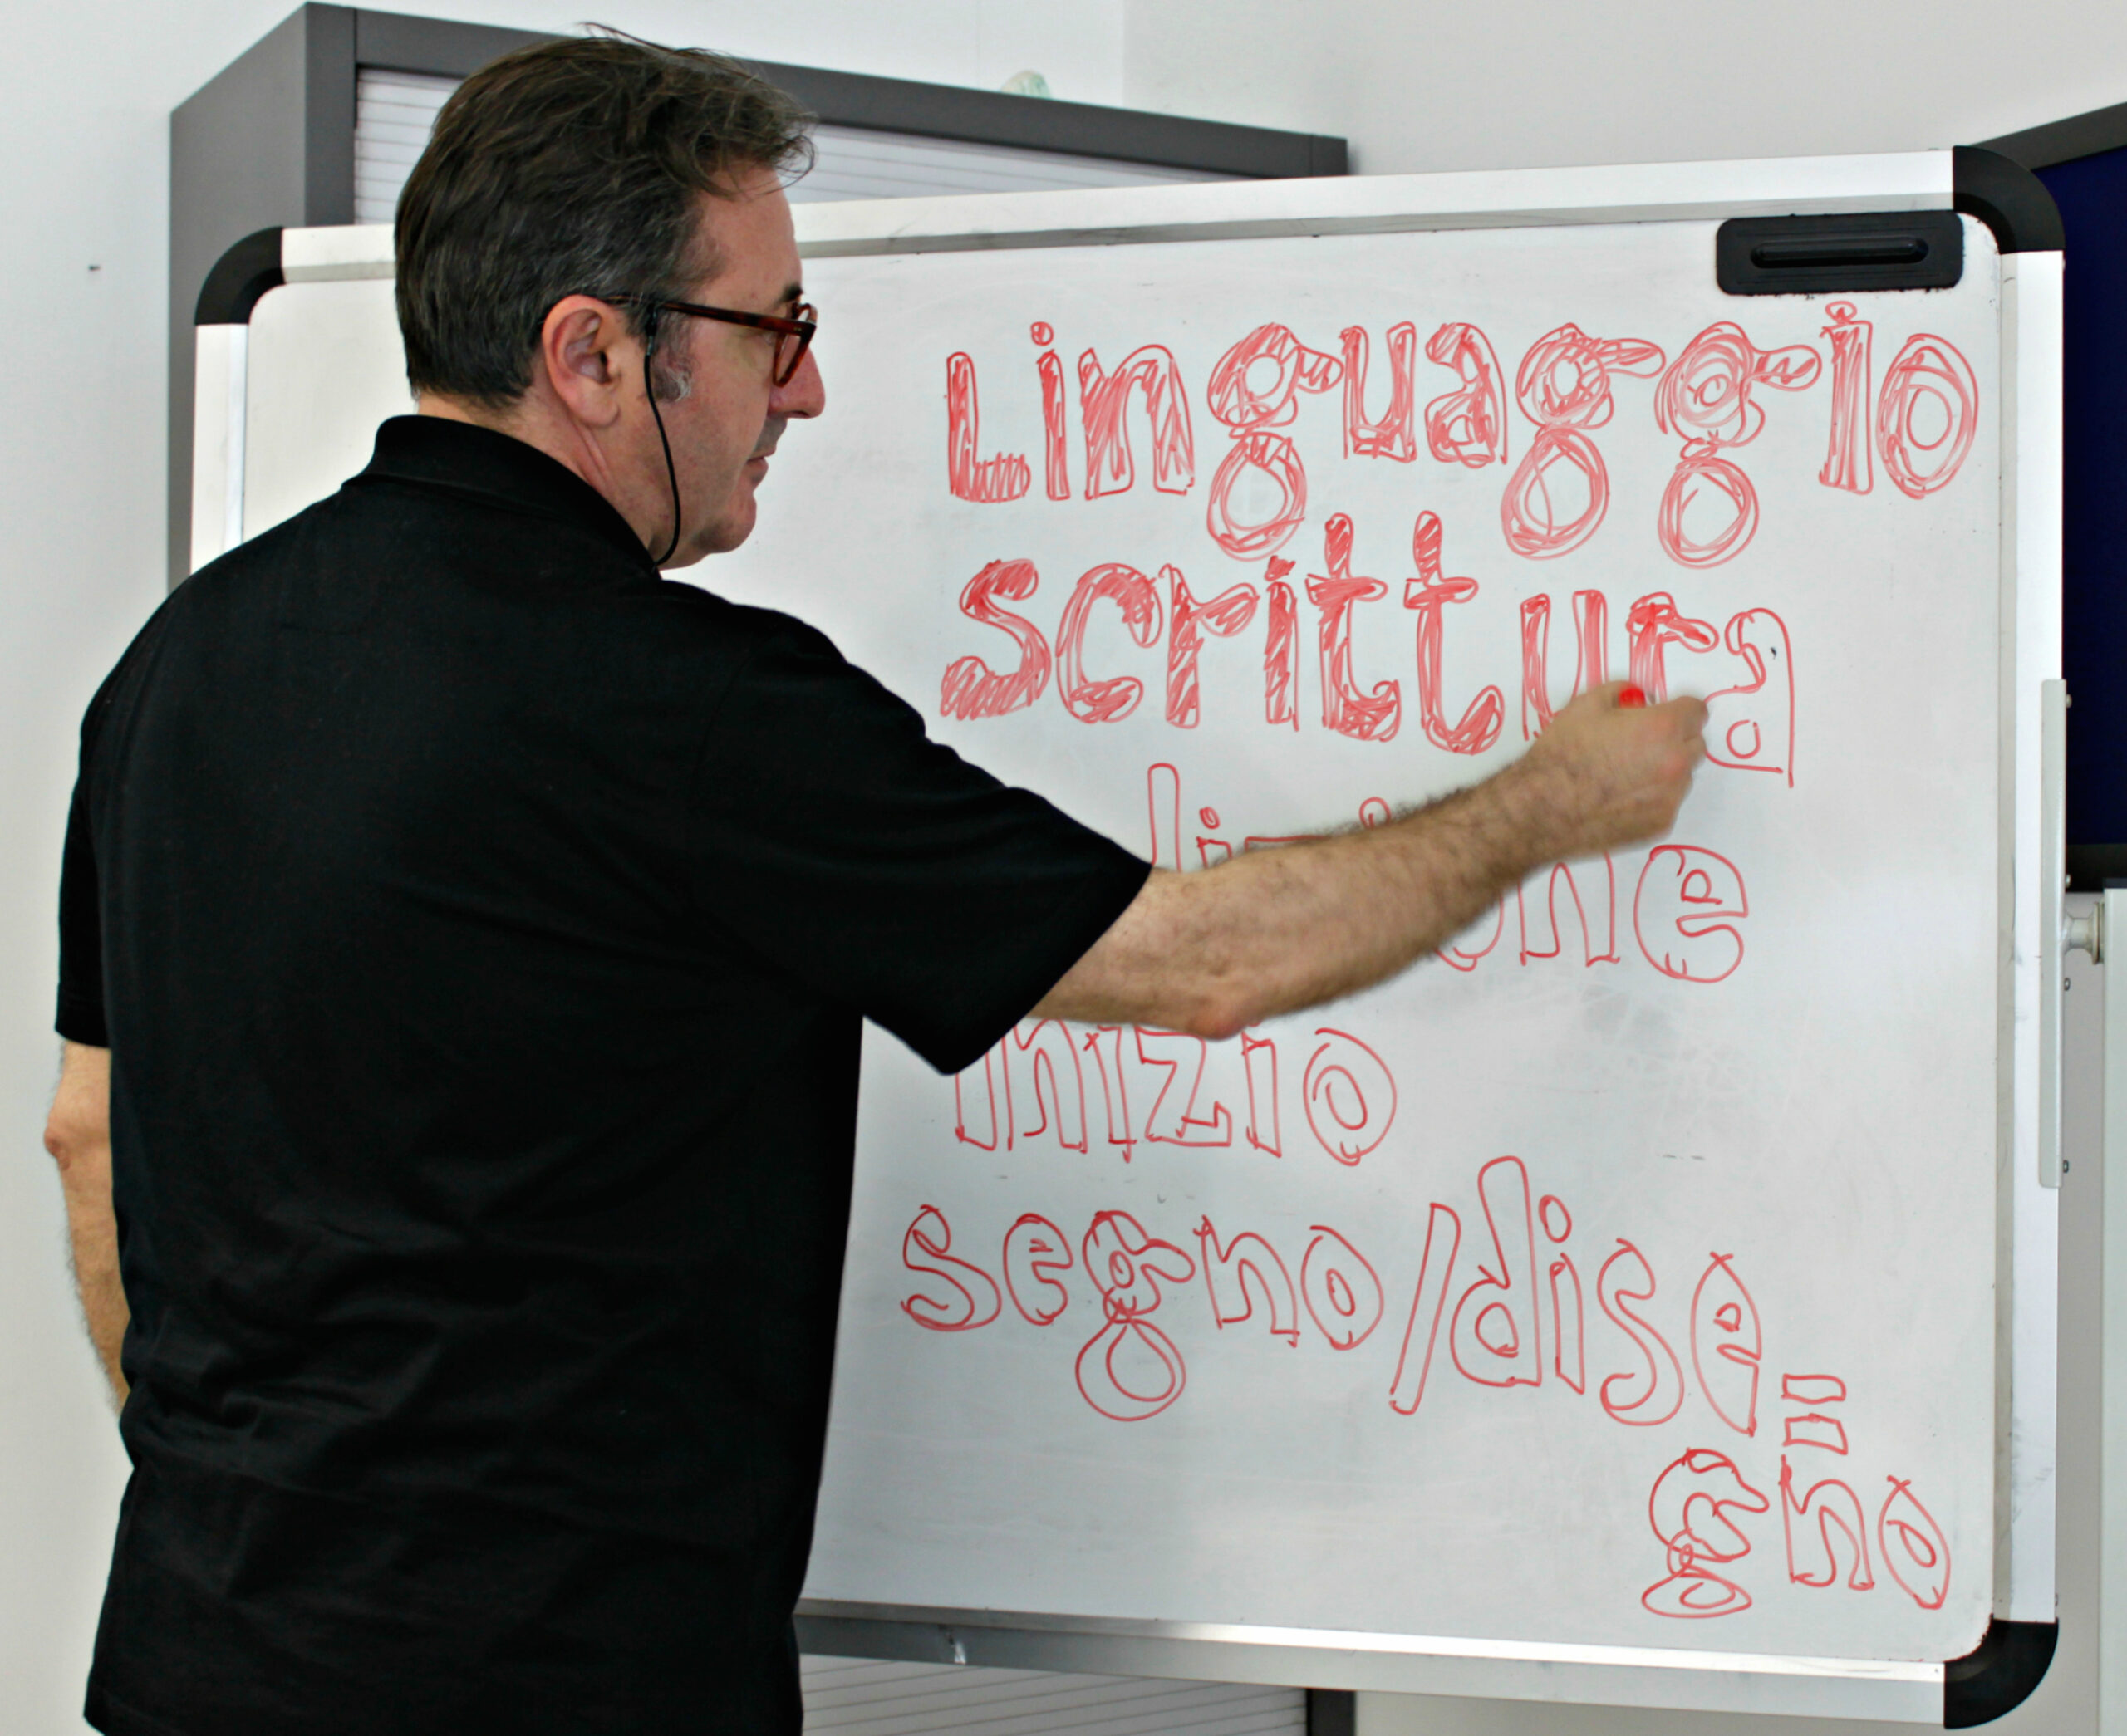 Linguaggio
scrittura
inizio
segno/dise=
gno